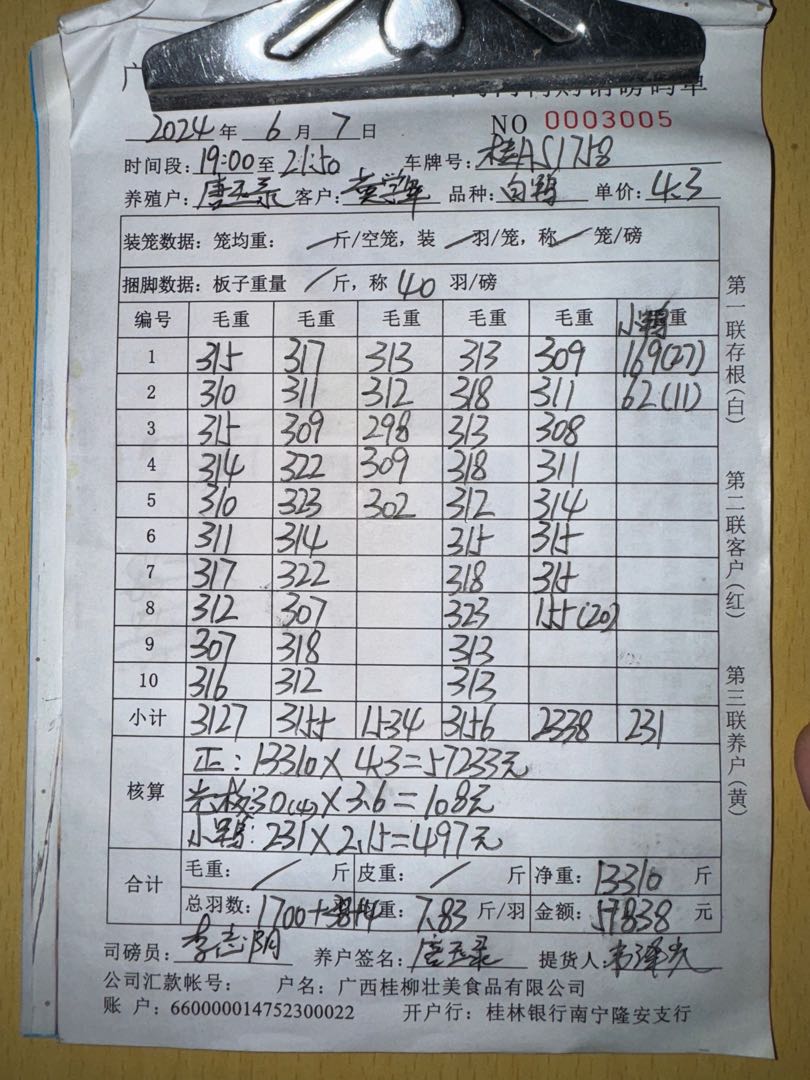 广
购销磅码单
2024年 6月 7日 NO 0003005
时间段:19:00至21:50 车牌号:桂AS1758
养殖户:唐玉录 客户: 品种:白鸭 单价:4.3
装笼数据:笼均重: / 斤/空笼,装 / 羽/笼,称 / 笼/磅
捆脚数据:板子重量 / 斤,称 40 羽/磅
编号 毛重 毛重 毛重 毛重 毛重 小鸭重
1 315 317 313 313 309 169(27)
2 310 311 312 318 311 62(11)
3 315 309 298 313 308
4 314 322 309 318 311
5 310 323 302 312 314
6 311 314 315 315
7 317 322 318 315
8 312 307 323 155(20)
9 307 318 313
10 316 312 313
小计 3127 3155 1534 3156 2338 231
核算
正:13310×4.3=57233元
30(4)×3.6=108元
小鸭:231×2.15=497元
合计
毛重: / 斤 皮重: / 斤 净重:13310 斤
总羽数:1700+38+4 重:7.83 斤/羽 金额:57838 元
司磅员:李志阴 养户签名:唐玉录 提货人:
公司汇款帐号: 户名:广西桂柳壮美食品有限公司
账 户:660000014752300022 开户行:桂林银行南宁隆安支行
第一联存根(白)
第二联客户(红)
第三联养户(黄)